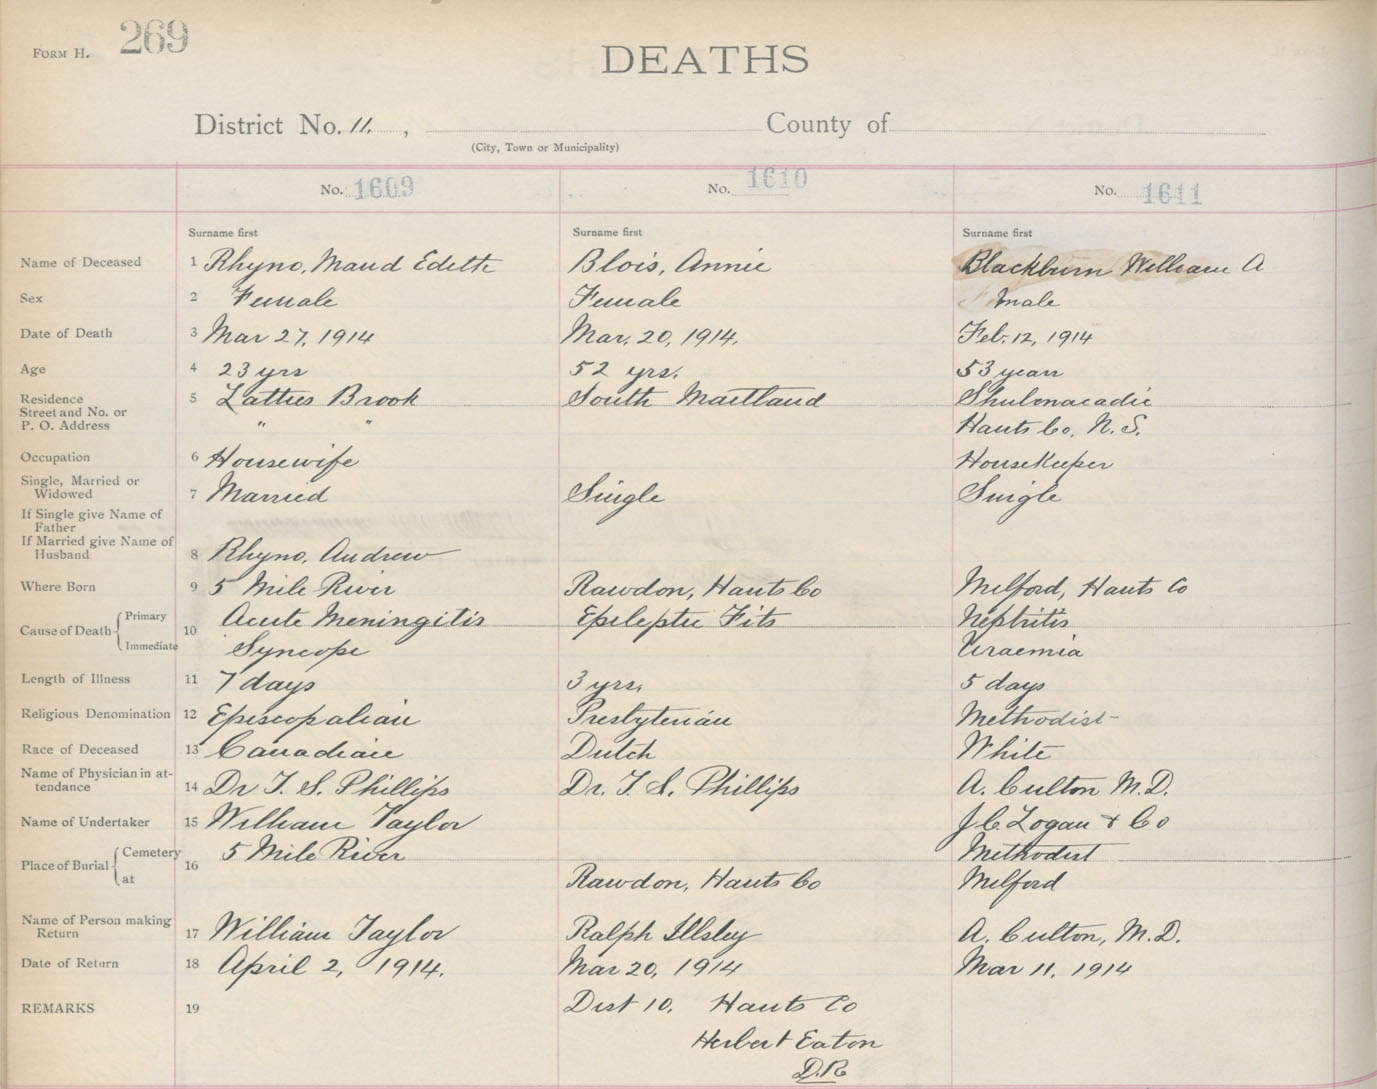 FORM H. 269
DEATHS
District No. 11. , County of
(City, Town or Municipality)
No. 1609 No. 1610 No. 1611
Surname first Surname first Surname first
Name of Deceased 1 Rhyno, Maud Edith Blois, Annie Blackburn William A
Sex 2 Female Female male
Date of Death 3 Mar 27, 1914 Mar. 20, 1914. Feb. 12, 1914
Age 4 23 yrs 52 yrs. 53 years
Residence 5 Latties Brook South Maitland Shubenacadie
Street and No. or
P. O. Address " " Hants Co. N. S.
Occupation 6 Housewife HouseKeeper
Single, Married or
Widowed 7 Married Single Single
If Single give Name of
Father
If Married give Name of
Husband 8 Rhyno, Andrew
Where Born 9 5 Mile River Rawdon, Hants Co Milford, Hants Co
Cause of Death Primary 10 Acute Meningitis Epileptic Fits Nephritis
Immediate Syncope Uraemia
Length of Illness 11 7 days 3 yrs. 5 days
Religious Denomination 12 Episcopalian Presbyterian Methodist
Race of Deceased 13 Canadian Dutch White
Name of Physician in at-
tendance 14 Dr T. S. Phillips Dr. T. S. Phillips A. Culton M.D.
Name of Undertaker 15 William Taylor J C. Logan & Co
Place of Burial Cemetery 16 5 Mile River Methodist
at Rawdon, Hants Co Milford
Name of Person making
Return 17 William Taylor Ralph Illsley A. Culton, M.D.
Date of Return 18 April 2, 1914. Mar 20, 1914 Mar 11, 1914
REMARKS 19 Dist 10. Hants Co
Herbert Eaton
D.R